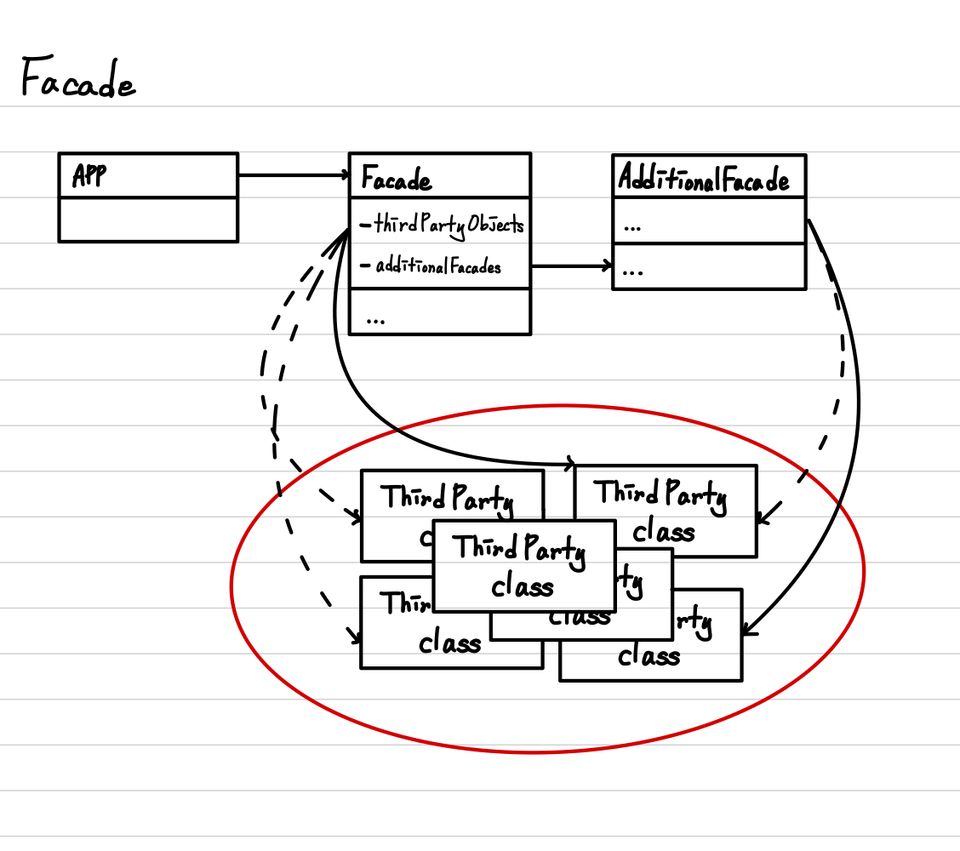 Facade
APP
Facade
- thirdPartyObjects
- additionalFacades
...
AdditionalFacade
...
...
ThirdParty
ThirdParty
class
ThirdParty
class
class
class
class